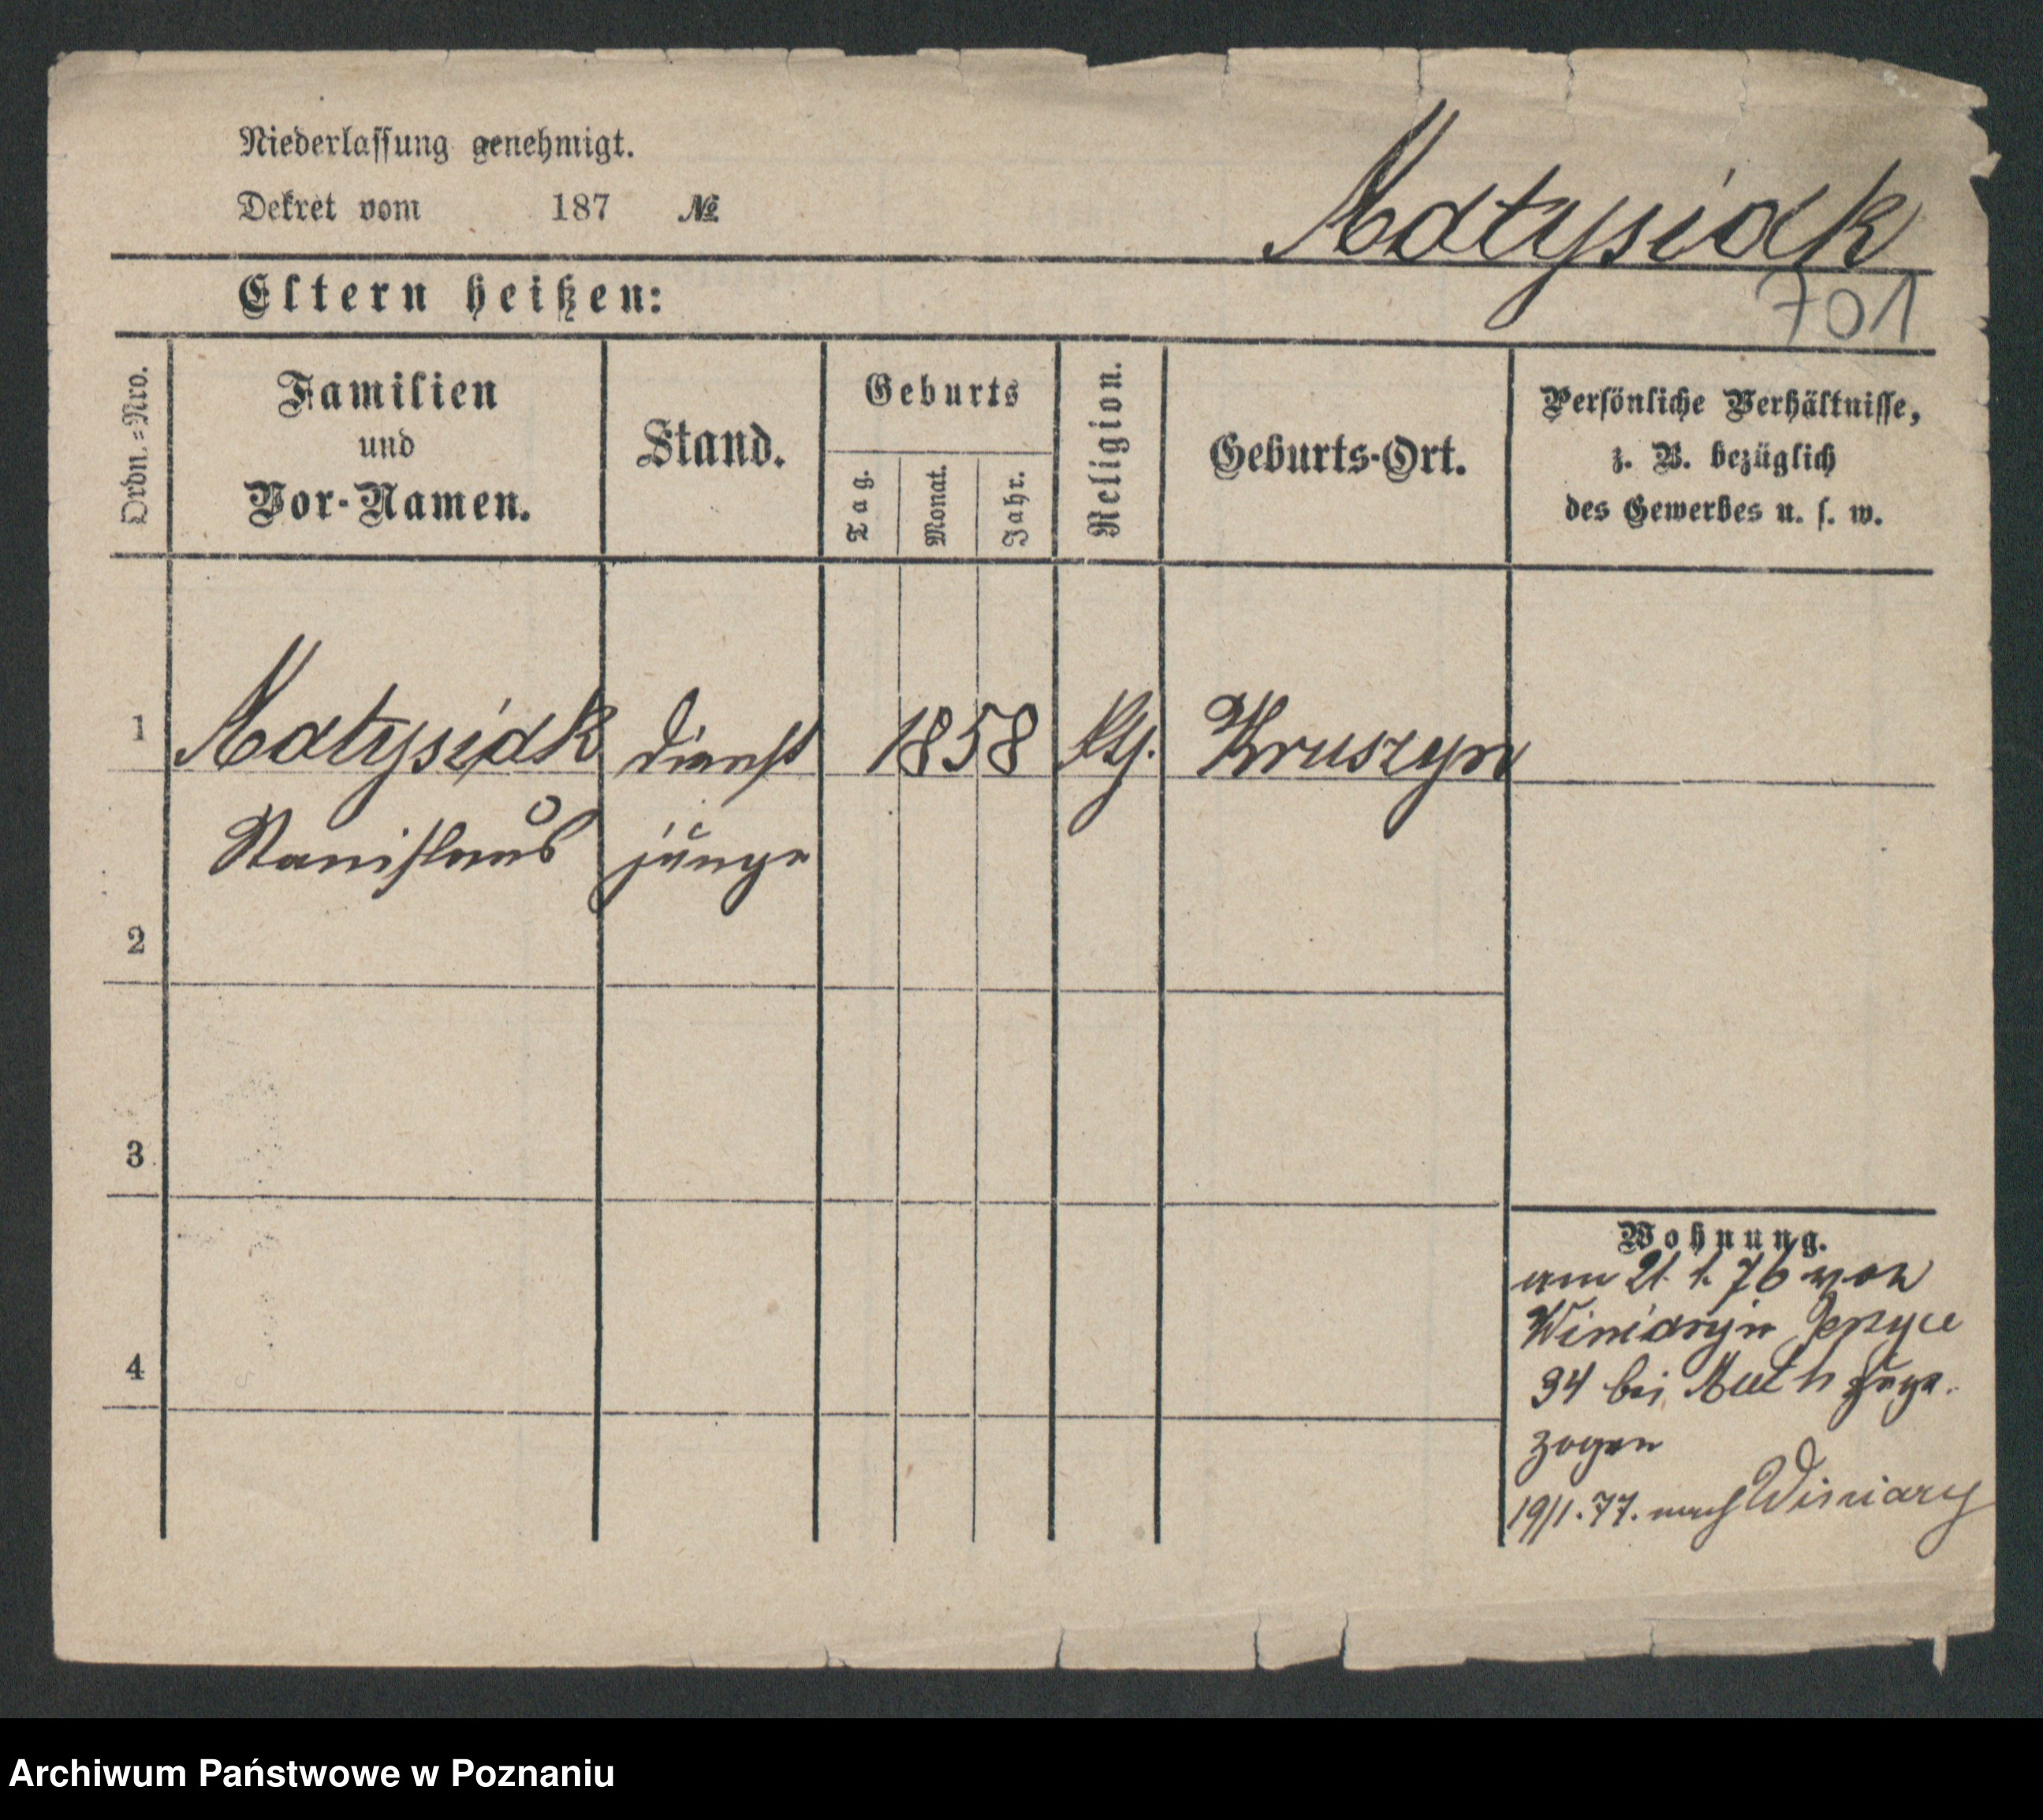 Niederlassung genehmigt.
Dekret vom 187 №
Matysiak
Eltern heißen:
701
Ordn.=Nro.
Familien
und
Vor-Namen.
Stand.
Geburts
Tag.
Monat.
Jahr.
Religion.
Geburts-Ort.
Persönliche Verhältnisse,
z. B. bezüglich
des Gewerbes u. s. w.
1 Matysiak Dienst 1858 Kruszyn
Stanislaus junge
2
3
4
Wohnung.
am 21. 1. 76 von
Winiary in Jerzyce
34 bei Muth zuge-
zogen
19/1. 77. nach Winiary
Archiwum Państwowe w Poznaniu